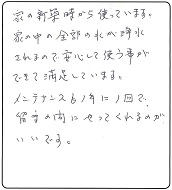 家の新築時から使っています。
家の中の全部の水が浄水
されるので安心して使う事が
できて満足しています。
メンテナンスも1年に1回で、
留守の間にやってくれるのが
いいです。